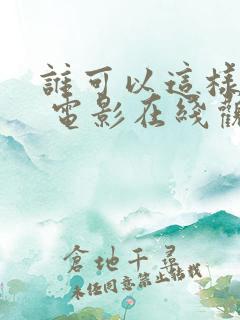 誰可以這樣
電影在线觀
倉地千尋
未经同意禁止转载